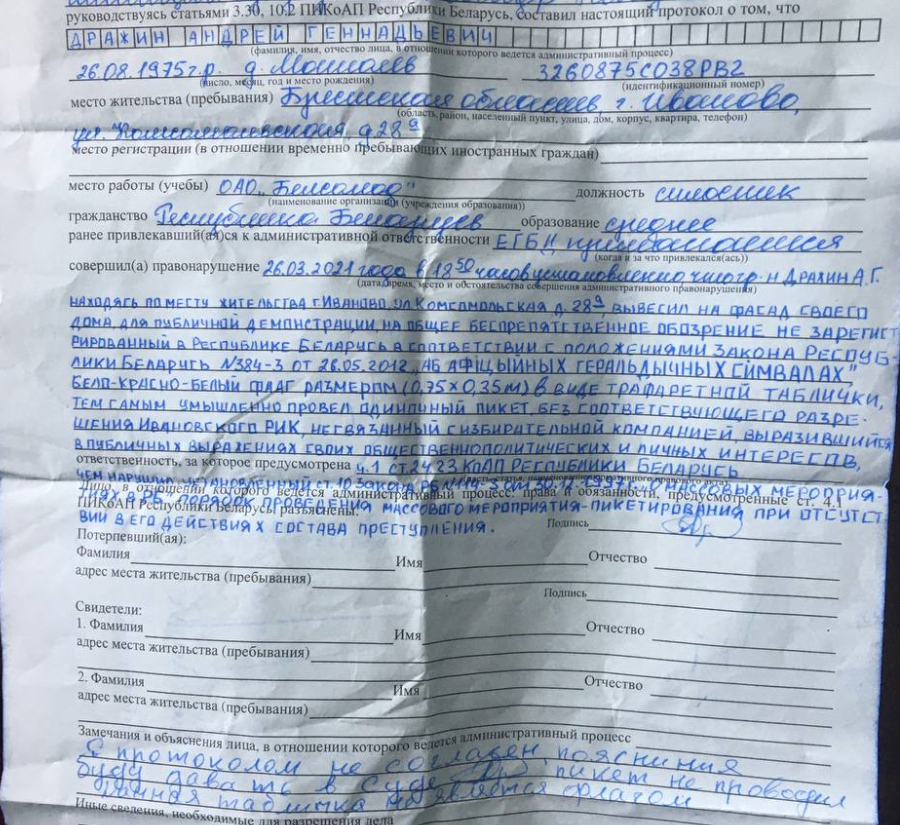 руководствуясь статьями 3.30, 10.2 ПИКоАП Республики Беларусь, составил настоящий протокол о том, что
ДРАХИН АНДРЕЙ ГЕННАДЬЕВИЧ
(фамилия, имя, отчество лица, в отношении которого ведется административный процесс)
26.08.1975 г.р. 3260875C038PB2
(число, месяц, год и место рождения) (идентификационный номер)
место жительства (пребывания) Брестская область г. Иваново,
(область, район, населенный пункт, улица, дом, корпус, квартира, телефон)
ул. Комсомольская, д 28а
место регистрации (в отношении временно пребывающих иностранных граждан)
место работы (учебы) ОАО должность
(наименование организации (учреждения образования))
гражданство Республика Беларусь образование среднее
ранее привлекавший(ая)ся к административной ответственности ЕГБД
(когда и за что привлекался(ась))
совершил(а) правонарушение 26.03.2021 года в 18 50 часов установлено что гр-н Драхин А.Г.
(дата, время, место и обстоятельства совершения административного правонарушения)
НАХОДЯСЬ ПО МЕСТУ ЖИТЕЛЬСТВА Г. ИВАНОВО, УЛ КОМСОМОЛЬСКАЯ, Д. 28а, ВЫВЕСИЛ НА ФАСАД СВОЕГО
ДОМА, ДЛЯ ПУБЛИЧНОЙ ДЕМОНСТРАЦИИ, НА ОБЩЕЕ БЕСПРЕПЯТСТВЕННОЕ ОБОЗРЕНИЕ НЕ ЗАРЕГИСТ
РИРОВАННЫЙ В РЕСПУБЛИКЕ БЕЛАРУСЬ В СООТВЕТСТВИИ С ПОЛОЖЕНИЯМИ ЗАКОНА РЕСПУБ-
ЛИКИ БЕЛАРУСЬ №384-З ОТ 26.05.2012 „АБ АФІЦЫЙНЫХ ГЕРАЛЬДЫЧНЫХ СИМВАЛАХ"
БЕЛО-КРАСНО-БЕЛЫЙ ФЛАГ РАЗМЕРОМ (0,75×0,35м) В ВИДЕ ТРАФАРЕТНОЙ ТАБЛИЧКИ,
ТЕМ САМЫМ УМЫШЛЕННО ПРОВЕЛ ОДИНОЧНЫЙ ПИКЕТ, БЕЗ СООТВЕТСТВУЮЩЕГО РАЗРЕ-
ШЕНИЯ ИВАНОВСКОГО РИК, НЕ СВЯЗАННЫЙ С ИЗБИРАТЕЛЬНОЙ КОМПАНИЕЙ, ВЫРАЗИВШИЙСЯ
В ПУБЛИЧНЫХ ВЫРАЖЕНИЯХ СВОИХ ОБЩЕСТВЕННОПОЛИТИЧЕСКИХ И ЛИЧНЫХ ИНТЕРЕСОВ,
ответственность, за которое предусмотрена ч. 1 ст. 24.23 КоАП РЕСПУБЛИКИ БЕЛАРУСЬ
ЧЕМ НАРУШИЛ УСТАНОВЛЕННЫЙ СТ. 10 ЗАКОНА РБ №114-З ОТ 30.12.1997 „О МАССОВЫХ МЕРОПРИЯ-
Лицо, в отношении которого ведется административный процесс: права и обязанности, предусмотренные ст. 4.1
ТИЯХ В РБ" ПОРЯДОК ПРОВЕДЕНИЯ МАССОВОГО МЕРОПРИЯТИЯ-ПИКЕТИРОВАНИЯ ПРИ ОТСУТСТ
ПИКоАП Республики Беларусь разъяснены.
ВИИ В ЕГО ДЕЙСТВИЯХ СОСТАВА ПРЕСТУПЛЕНИЯ. Подпись
Потерпевший(ая):
Фамилия Имя Отчество
адрес места жительства (пребывания)
Подпись
Свидетели:
1. Фамилия Имя Отчество
адрес места жительства (пребывания)
2. Фамилия Имя Отчество
адрес места жительства (пребывания)
Замечания и объяснения лица, в отношении которого ведется административный процесс
С протоколом не согласен, пояснения
буду давать в суде пикет не проводил
данная табличка не является флагом
Иные сведения, необходимые для разрешения дела